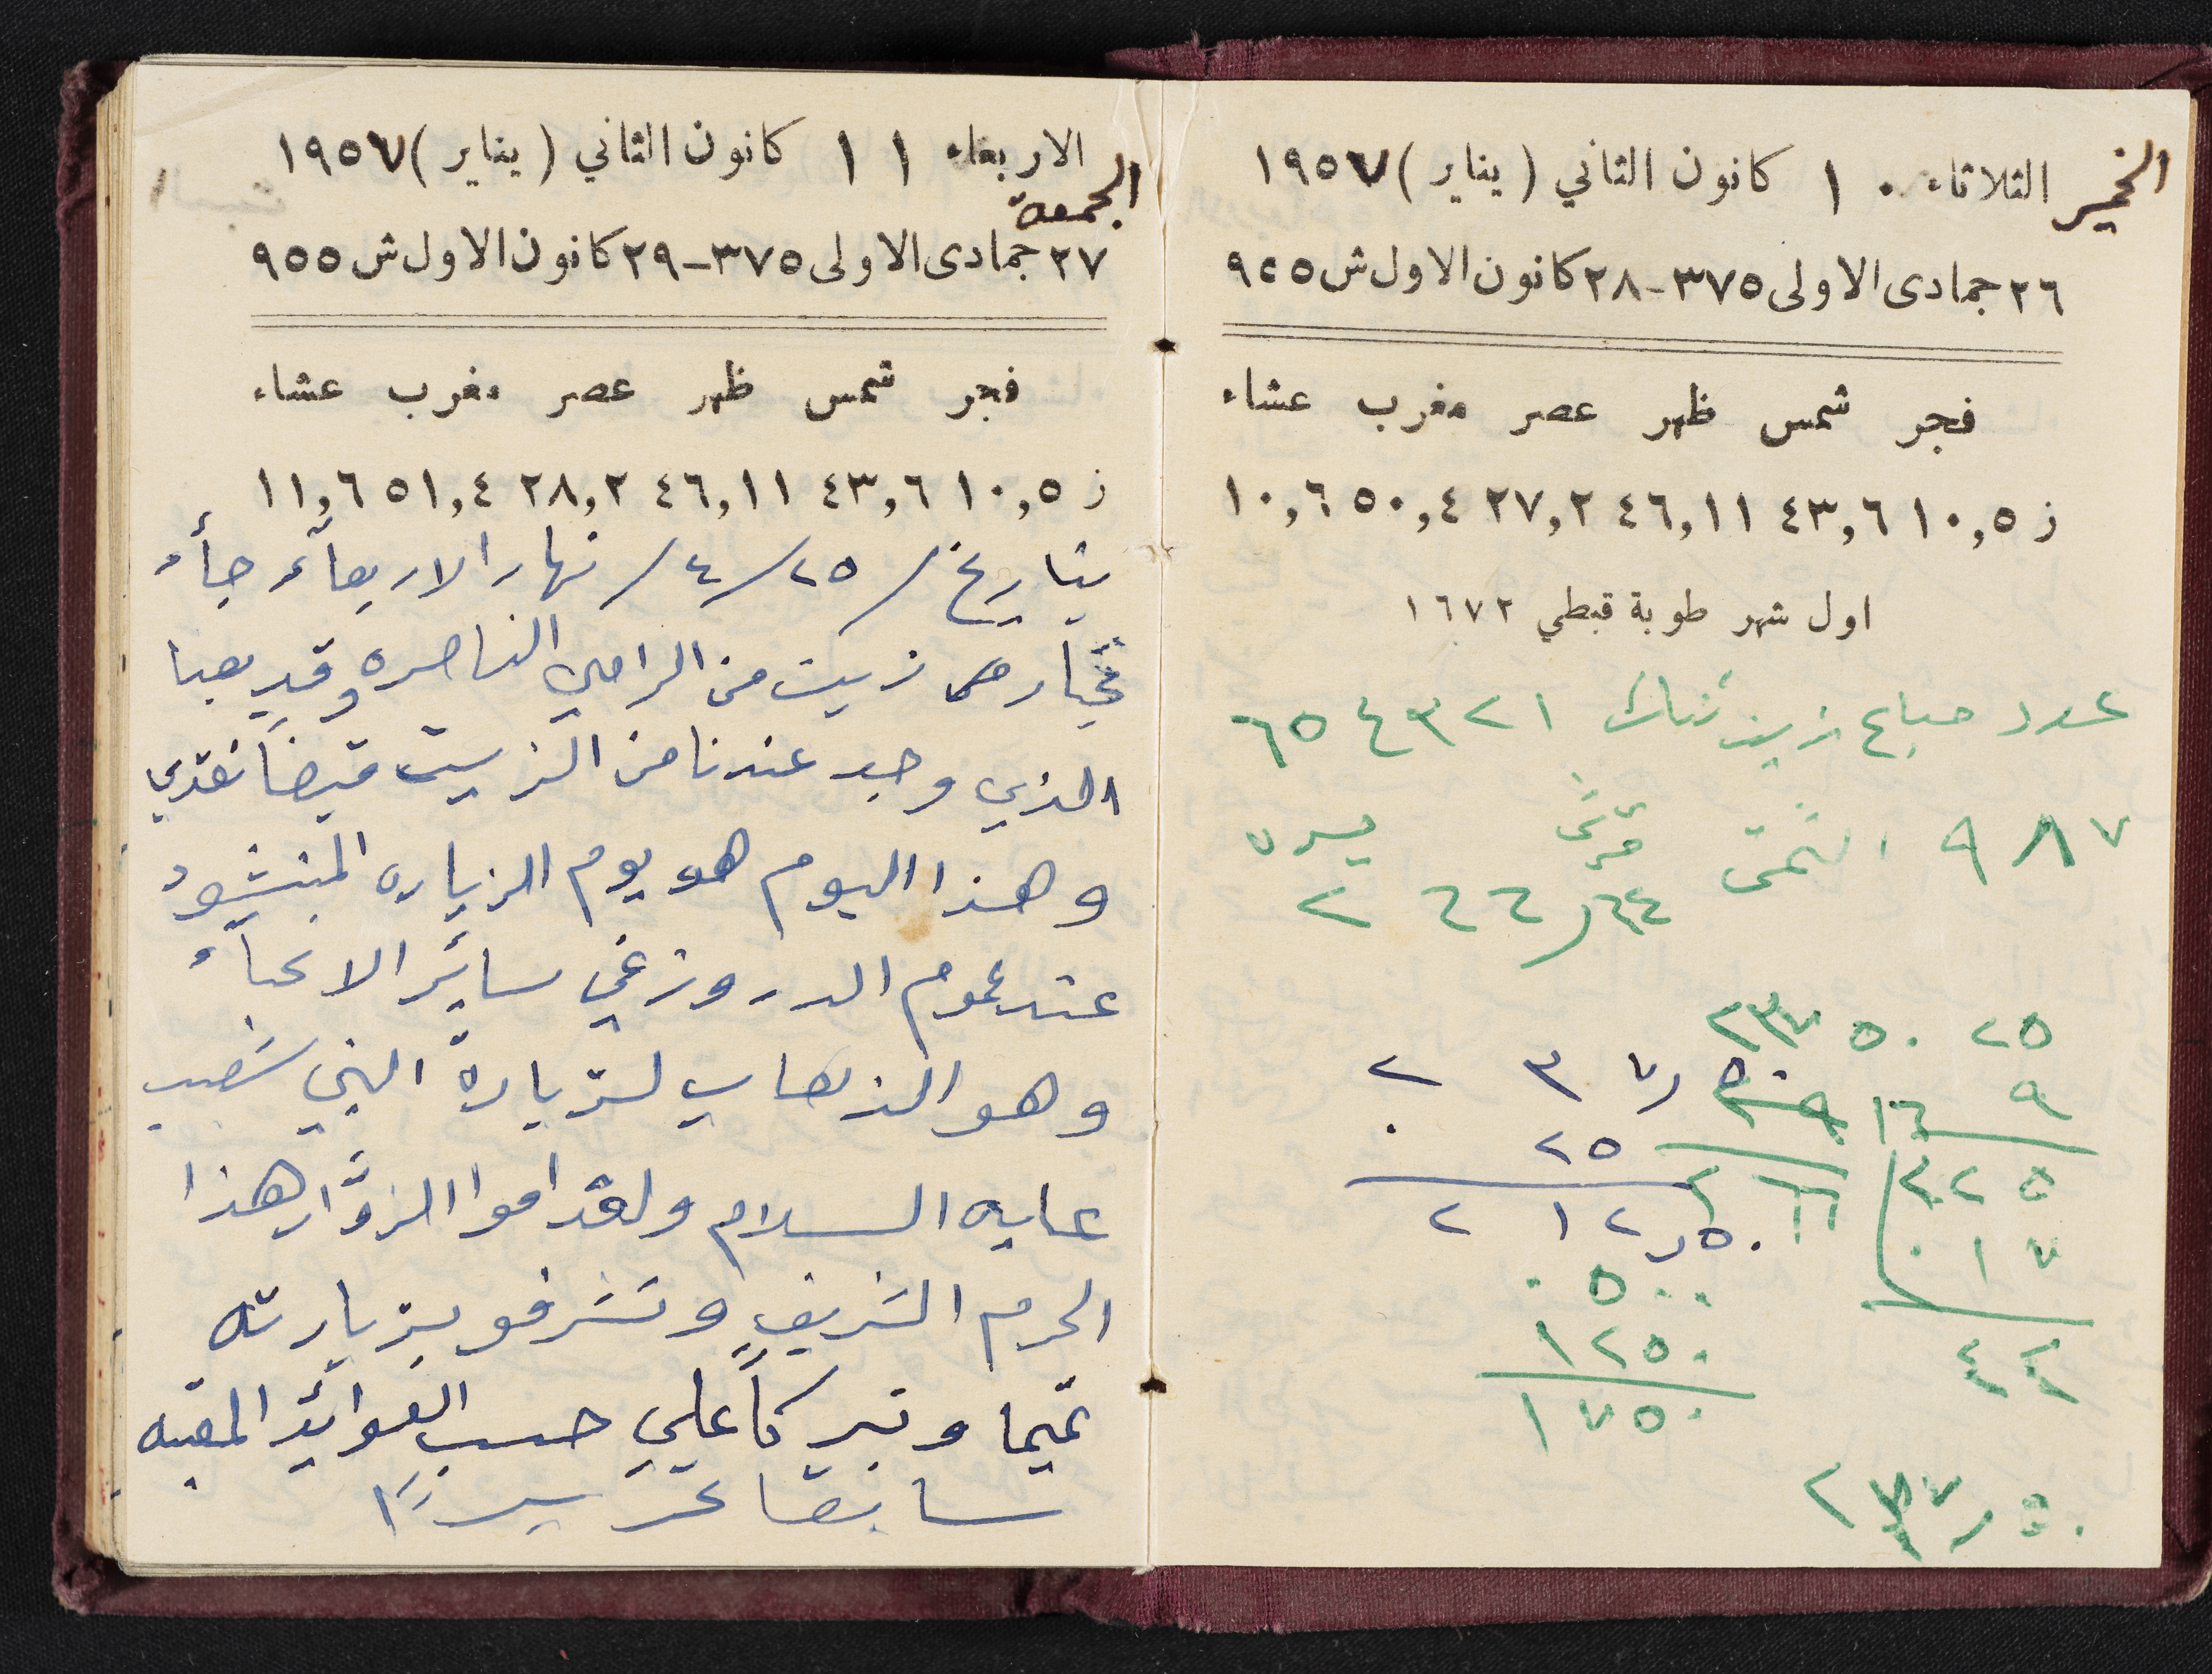 الخميس الثلاثاء ١٠ كانون الثاني (يناير) ١٩٥٧
٢٦ جمادى الاولى ٣٧٥ - ٢٨ كانون الاول ش ٩٥٥
فجر شمس ظهر عصر مغرب عشاء
ز ١٠,٥ ٤٣,٦ ٤٦,١١ ٢٧,٢ ٥٠,٤ ١٠,٦
اول شهر طوبة قبطي ١٦٧٢
عدد مباع زيت تنك ١ ٢ ٣ ٤ ٥ ٦
٧ ٨ ٩ الثمن قرش ليره
٦٤ر ٦٦ ٢
٢٥ ٢٣٧٥٠
٩
٢٢٥
١٧٠
٤٤
٢٣٧ر٥٠
٢٥
٢١٢ر٥٠
٥٠٠
١٢٥٠
١٧٥٠
٢٣٧ر٥٠
الاربعاء ١١ كانون الثاني (يناير) ١٩٥٧
الجمعة
٢٧ جمادى الاولى ٣٧٥ - ٢٩ كانون الاول ش ٩٥٥
فجر شمس ظهر عصر مغرب عشاء
ز ١٠,٥ ٤٣,٦ ٤٦,١١ ٢٨,٢ ٥١,٤ ١١,٦
بتاريخ /٢٥/٤/ نهار الاربعآء جأء
زيت من الرامي الناصره وقد بعنا
الذي وجد عندنا من الزيت قبضاً نقدي
وهذا اليوم هو يوم الزياره المنشود
عند عموم الدروز في سائر الانحآء
وهو الذهاب لزيارة النبي شعيب
عليه السلام ولقد اموا الزوّار هذا
الحرم الشريف وتشرفو بزيارته
وتبركاً علي حسب العوائد
سابقا تحريراً